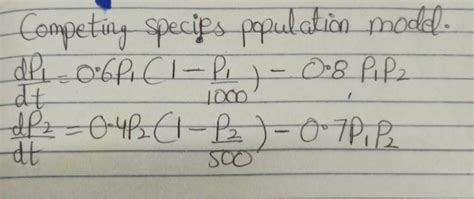 Competing species population model.
dP₁/dt = 0.6P₁(1 − P₁/1000) − 0.8 P₁P₂
dP₂/dt = 0.4P₂(1 − P₂/500) − 0.7P₁P₂